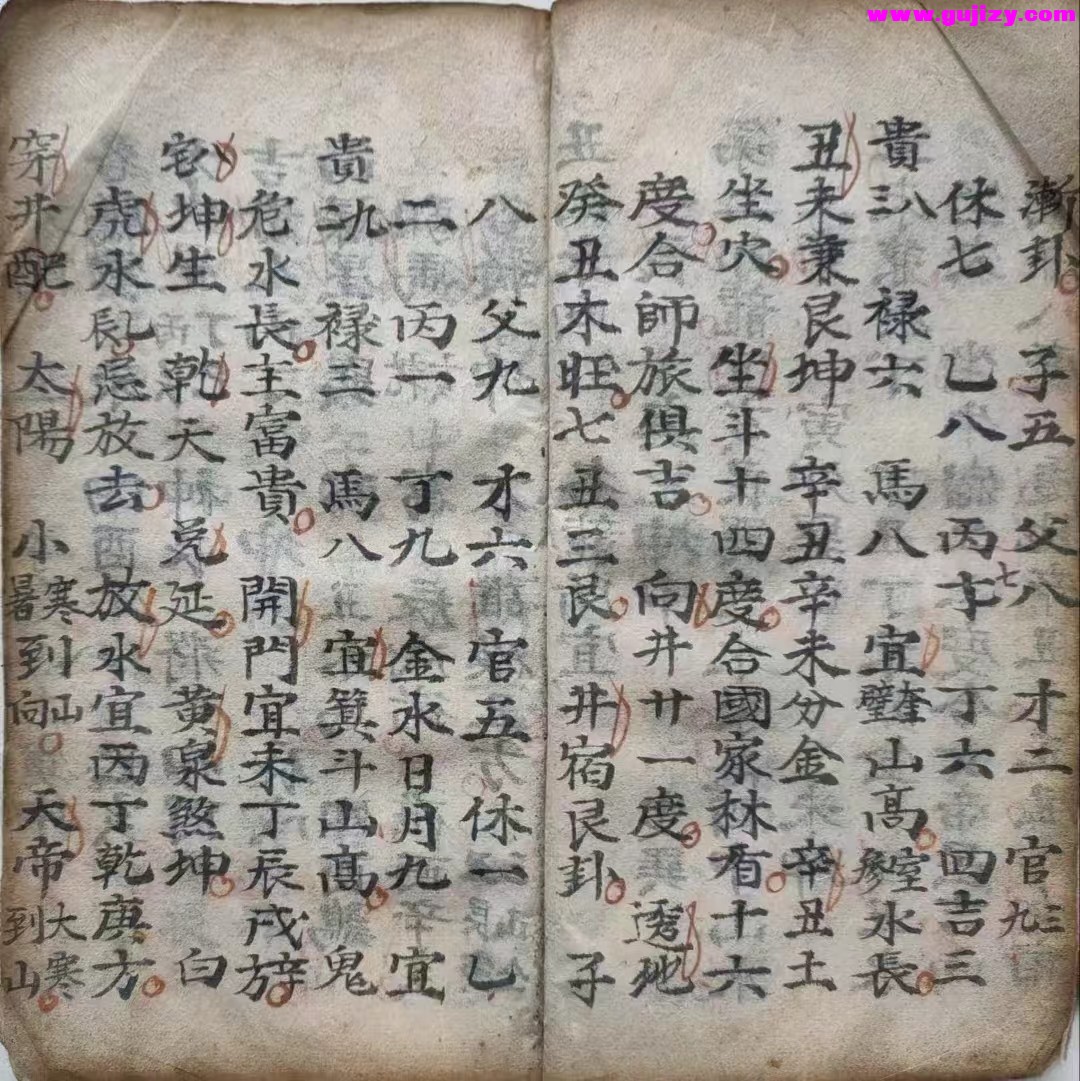 www.gujizy.com
漸卦 子五 父八 才二 官三九
休七 乙八 丙七 丁六 四吉三
貴三八 禄六 馬八 宜奎壁山高 室參水長
丑未兼艮坤 辛丑辛未分金 辛丑土
坐穴 坐斗十四度合國家林看十六
度合師旅俱吉 向井廿一度 透地
癸丑木旺七丑三艮 井宿艮卦 子
八 父九 才六 官五 休一 乙
二 丙一 丁九 金水日月九宜
貴二九 禄三 馬八 宜箕斗山高 鬼
危水長主富貴 開門宜未丁辰戌辛方
宅坤生 乾天 兌延 黄泉煞坤 白
虎水辰乱忌放去 放水宜丙丁乾庚方
穿井配 太陽 小寒暑到山向 天帝大寒到山